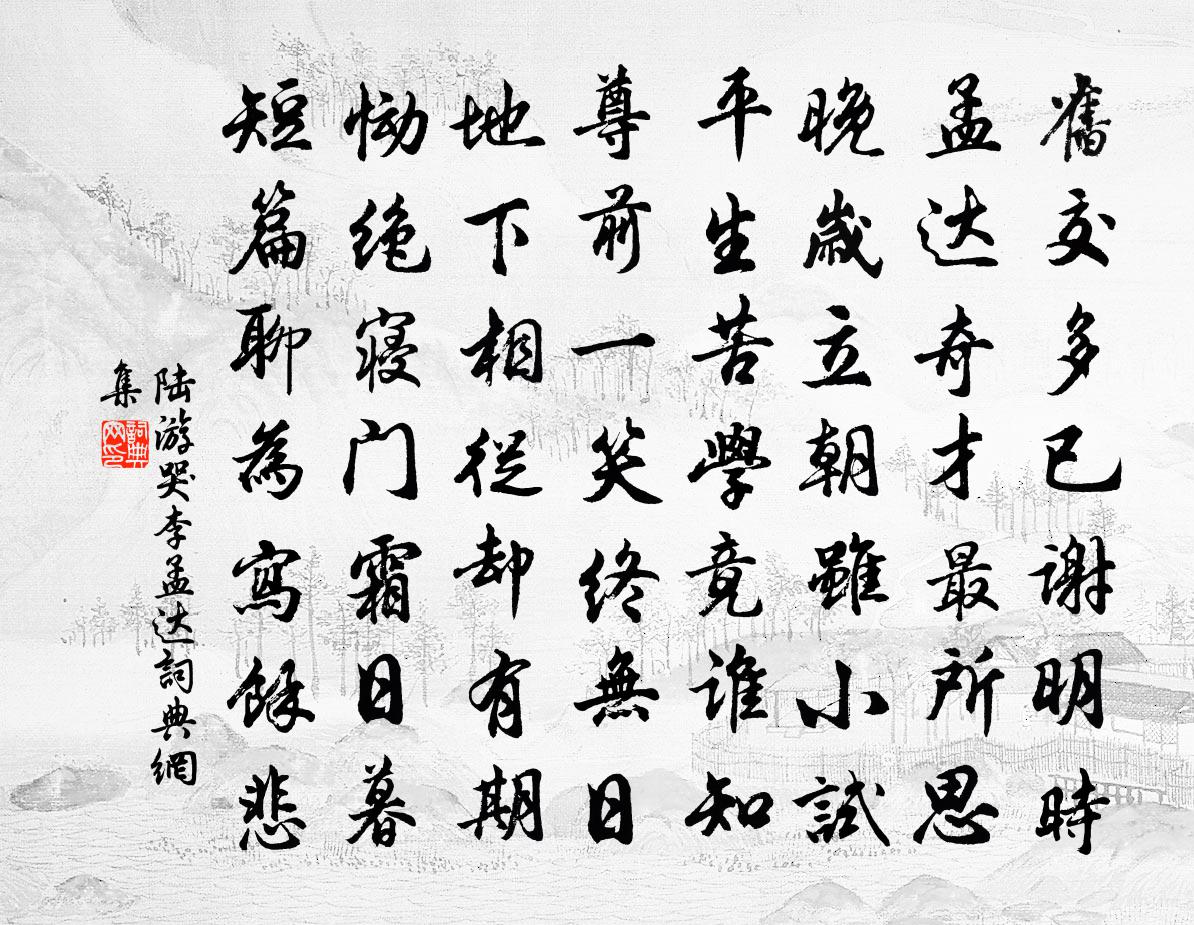 舊交多已謝明時
孟达奇才最所思
晚歲立朝雖小試
平生苦學竟誰知
尊前一笑終無日
地下相從却有期
慟絶寢門霜日暮
短篇聊為寫餘悲
陆游哭李孟达詞典網
集
詞典网印